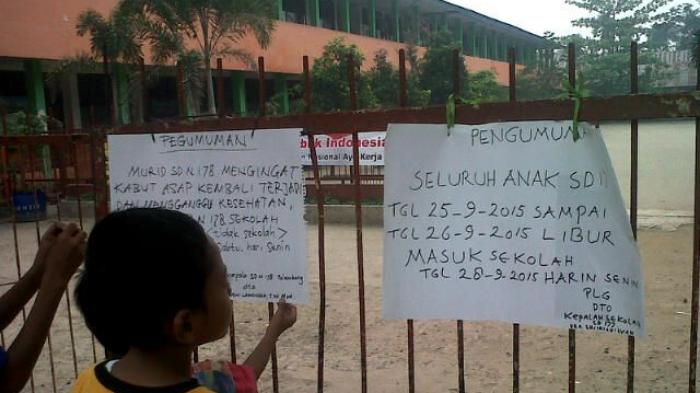 PEGUMUMAN
MURID SD N 178 MENGINGAT
KABUT ASAP KEMBALI TERJADI
DAN MENGGANGGU KESEHATAN,
178 SEKOLAH
<tidak sekolah>
Sabtu, hari Senin
SD N 178 Palembang
dto
Indonesia
Nasional Ayo Kerja
PENGUMUMAN
SELURUH ANAK SD
TGL 25-9-2015 SAMPAI
TGL 26-9-2015 LIBUR
MASUK SEKOLAH
TGL 28-9-2015 HARIN SENIN
PLG
DTO
KEPALAH SEKOLAH
SD 177